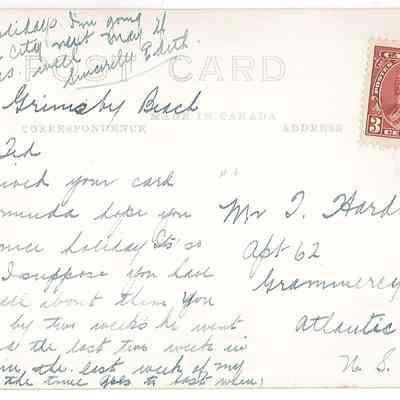 olidays. I'm going
City next May 24
well
Sincerely Edith.
POST CARD
Grimsby Beach
MADE IN CANADA
CORRESPONDENCE
ADDRESS
3
Ted
ived your card
rmuda hope you
nice holiday Its so
I suppose you have
all about them, you
by two weeks he went
d the last two week in
in, the last week of my
the time goes to last when!
Mr T. Hard
Apt 62
Grammercy
Atlantic
N. S.